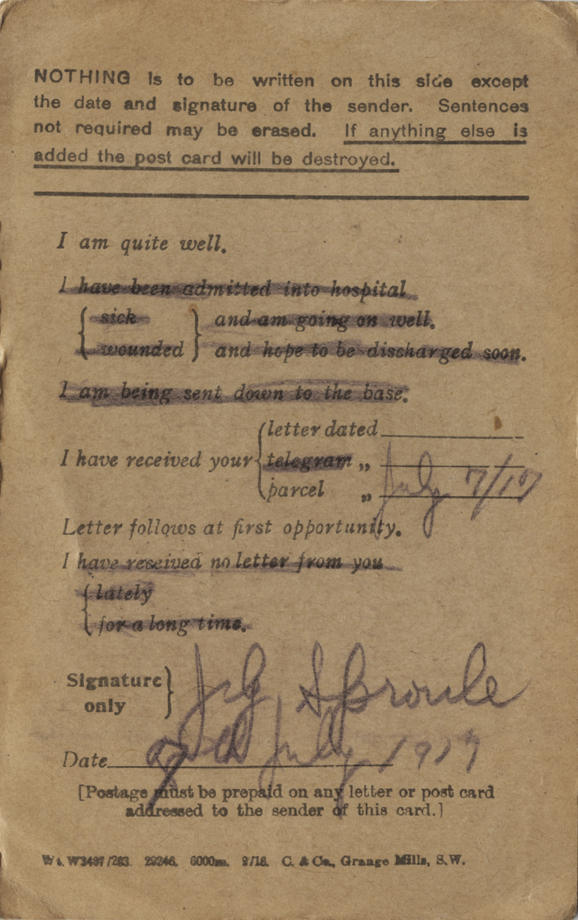 NOTHING is to be written on this side except
the date and signature of the sender. Sentences
not required may be erased. If anything else is
added the post card will be destroyed.
I am quite well.
I have been admitted into hospital
{ sick } and am going on well.
{ wounded } and hope to be discharged soon.
I am being sent down to the base.
letter dated
I have received your { telegram „
parcel „ July 7/17
Letter follows at first opportunity.
I have received no letter from you
{ lately
{ for a long time.
Signature only } J G Sproule
Date July 1917
[Postage must be prepaid on any letter or post card
addressed to the sender of this card.]
W3497/293. 29246. 6000m. 9/16. C. & Co., Grange Mills, S.W.